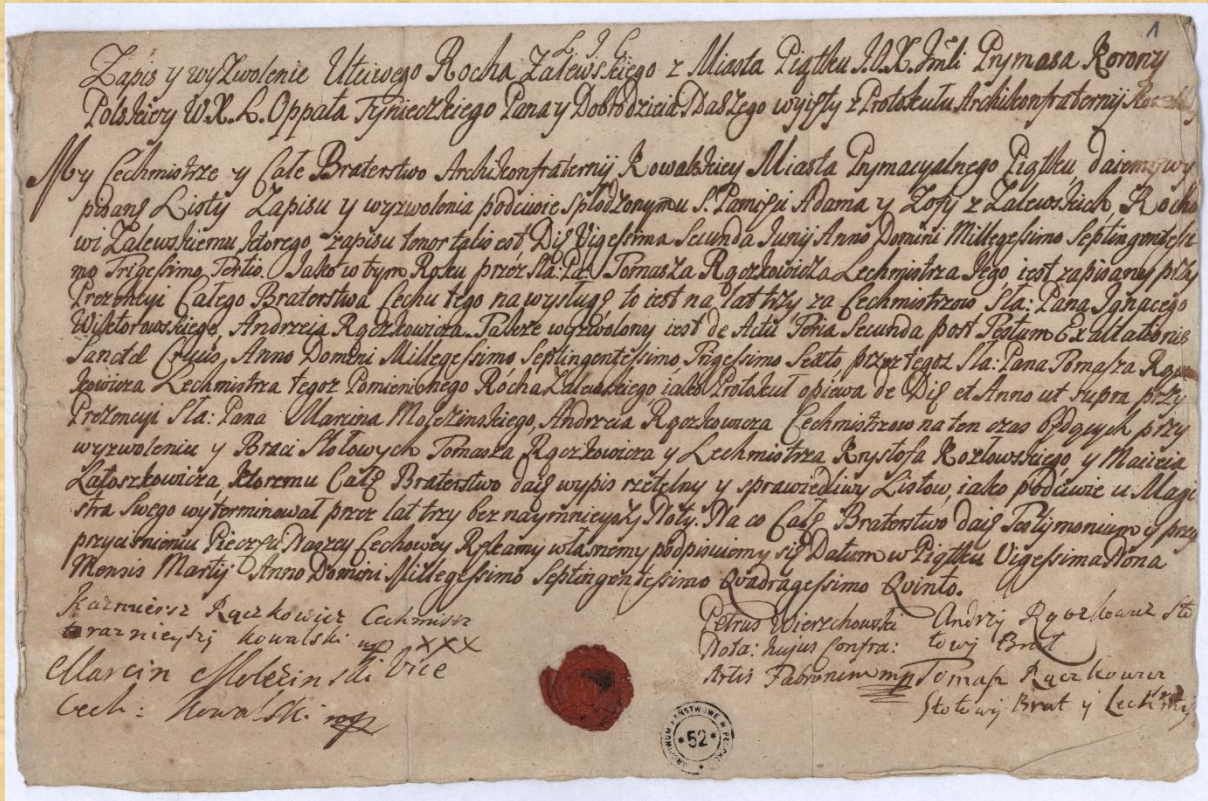 1
L. J. C.
Zapis y wyzwolenie Utciwego Rocha Zalewskiego z Miasta Piątku J.O.X. Jmći Prymasa Korony
Polskiey W.X.L. Oppata Tynieckiego Pana y Dobrodzieia Naszego wyięty z Protokułu Archikonfraternij
My Cechmistrze y Całe Braterstwo Archikonfraternij Kowalskiey Miasta Prymacyalnego Piątku daiemy wy
pisanę Listy Zapisu y wyzwolenia podciwie spłodzonymu S. Pamięci Adama y Zofy z Zalewskich Rocho
wi Zalewskiemu ktorego zapisu tenor talis est Dię Vigessima Secunda Junij Anno Domini Millegessimo Septingentessi
mo Trigessimo Tertio. Jako w tym Roku przez Sła: Pa: Tomasza Rączkowicza Cechmistrza Jego iest zapisany przy
Prezencyi Całego Braterstwa Cechu tego na wysługę to iest na lat trzy za Cechmistrzow Sła: Pana Ignacego
Wiktorowskiego, Andrzeia Rączkowicza. Takze wyzwolony iest de Actu Feria Secunda post Festum Exaltationis
Sanctæ Crucis, Anno Domini Millegessimo Septingentessimo Trigessimo Sexto przez tegoz Sła: Pana Tomasza Rącz
kowicza Cechmistrza tegoz Pomienionego Rocha Zalewskiego iako Protokuł opiewa de Dię et Anno ut supra przy
Prezencyi Sła: Pana Marcina Molezinskiego, Andrzeia Rączkowicza Cechmistrzow na ten czas będących przy
wyzwoleniu y Braci Stołowych Tomasza Rączkowicza y Lechmistrza Krystofa Kozłowskiego y Macieia
Łatoszkowicza, ktoremu Całę Braterstwo daię wypis rzetelny y sprawiedliwy Listow, iako podciwie u Magi
stra Swego wyterminował przez lat trzy bez naymnieyszy Noty. Na co Całę Braterstwo daię Testymonium y przy
przycisnieniu Pieczęci Naszey Cechowey Rękamy własnemy podpisuiemy się Datum w Piątku Vigessima Nona
Mensis Martij Anno Domini Millegessimo Septingentessimo Quadragessimo Quinto.
Kazmiersz Rączkowicz Cechmistrz
terazniejszy kowalski mp XXX
Marcin Molezinski Vice
Cech: kowalski mp
Petrus Wierzchowski
Nota: hujus Confra:
Artis Fabrorum mp
Andrzy Rączkowicz Sto
łowy Brat
Tomasz Rączkowicz
Stołowy Brat y
ARCHIWUM PAŃSTWOWE W PŁOCKU
52